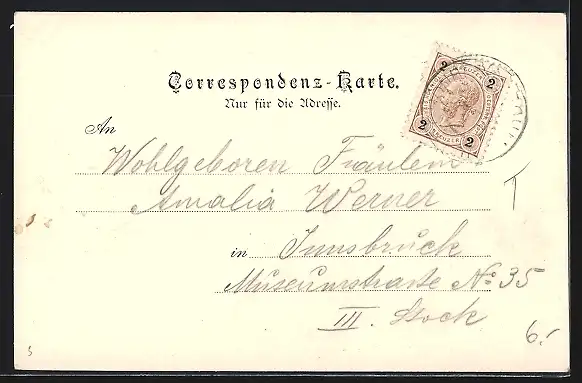 Correspondenz-Karte.
Nur für die Adresse.
An
Wohlgeboren Fräulein
Amalia Werner
in Innsbruck
Museumstraste No 35
III. Stock
2 2
2 2
T
6.-